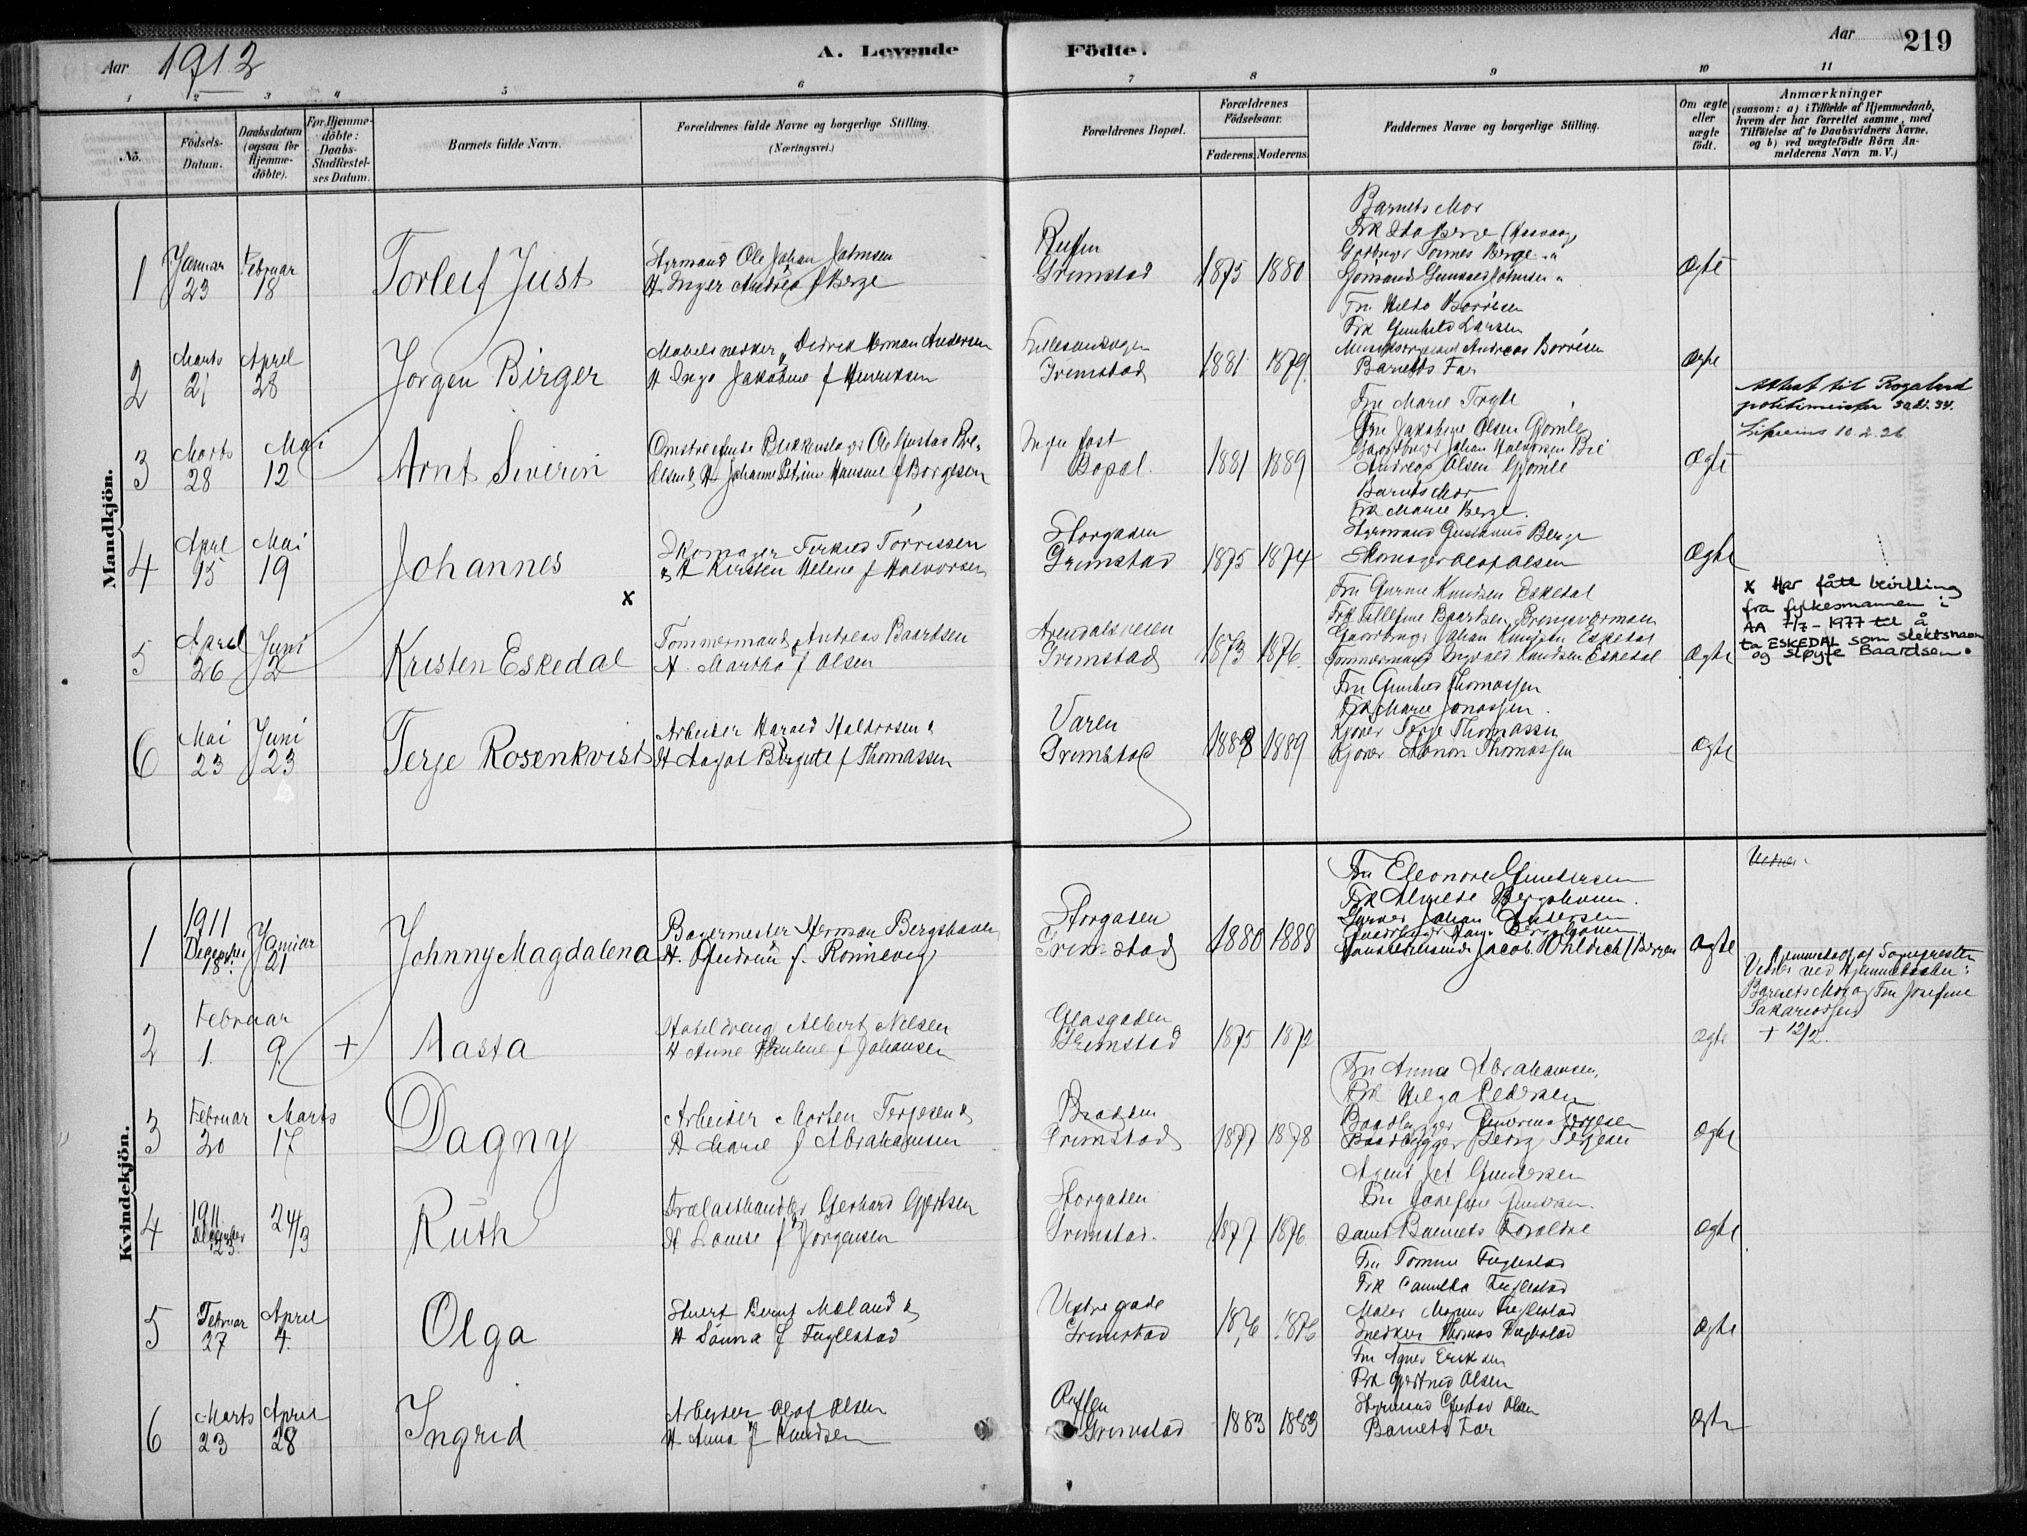 Aar 1912
A. Levende Födte.
Aar 219
1 2 3 4 5 6 7 8 9 10 11
No.
Födsels-Datum.
Daabsdatum (ogsaa for Hjemme-döbte).
For Hjemme-döbte: Daabs-Stadfæstel-ses Datum.
Barnets fulde Navn.
Forældrenes fulde Navne og borgerlige Stilling. (Næringsvei.)
Forældrenes Bopæl.
Forældrenes Födselsaar.
Faderens. Moderens.
Faddernes Navne og borgerlige Stilling.
Om ægte eller uægte födt.
Anmærkninger
(saasom: a) i Tilfælde af Hjemmedaab,
hvem der har forrettet samme, med
Tilföielse af to Daabsvidners Navne,
og b) ved uægtefödte Börn An-
melderens Navn m. V.)
Mandkjön.
1 Januar 23 Februar 18
Torleif Just
Styrmand Ole Johan
H. Inger Andrea f Berge
Grimstad
1875 1880
Barnets Mor
Berge
Berge
Ægte
2 Marts 21 April 28
Jørgen Birger
Didrik Herman Andersen
H Inga Jakobine f Henriksen
Grimstad
1881 1879
Fru Hilda Borresen
Frk Gunhild Larsen
Andreas Borresen
Barnets Far
Ægte
3 Marts 28 Mai 12
Arnt Siverin
Omstreifende Blikkenslager Ole Gustav
Olsen & H Johanne Petrine Hansine f Borgesen
Ingen fast
Bopæl.
1881 1889
Fru Marie
Fru Jakobine Olsen Gjømle
Gaardbruger Johan Halvorsen Bie
Andreas Olsen Gjømle
Ægte
Attest til Rogaland
politimester
10.2.26
4 April 15 Mai 19
Johannes
Skomager Terkild Torrissen
& H Kirsten Helene f Halvorsen
Storgaden
Grimstad
1875 1874
Barnets Mor
Frk Marie Berge.
Styrmand Berge
Skomager Olaf Olsen
Ægte
5 April 26 Juni 2
Kristen Eskedal x
Tømmermand Andreas Baardsen
H. Martha f Olsen
Arendalsveien
Grimstad
1873 1876.
Fru Gurine Knudsen Eskedal
Frk Tellefine Baardsen
Gaardbruger Johan Knudsen Eskedal
Tømmermand Ingvald Knudsen Eskedal
Ægte
x Har fått bevilling
fra fylkesmannen i
AA 7/7-1977 til å
ta ESKEDAL som slektsnavn
og sløyfe Baardsen.
6 Mai 23 Juni 23
Terje Rosenkvist
Arbeider Harald Halvorsen &
H Aagot Birgitte f Thomassen
Varen
Grimstad
1888 1889
Fru Gunhild Thomassen
Frk Marie Jonassen.
Kjører Terje Thomassen
Kjører Thomassen
Ægte
Kvindekjön.
1 1911 December 18. Januar 21
Johnny Magdalena
Bagermester Herman Bergshaven
H. Gudrun f. Rønnevig
Storgaden
Grimstad
1880 1888
Fru Eleonore Gundersen
Frk Almede Bergshaven.
Johan Andersen
Jacob Uhldrich (Bergen
Ægte
2 Februar 1. 9. +
Marta
Albert Nilsen
H Anne Pauline f Johansen
Grimstad
1875 1872
Ægte
Hjemmedøbt af Sogneprester
Vidner ved Hjemmedaaben:
Barnets Mor og Fru Josefine
Zakariassen
+ 12/2.
3 Februar 20 Marts 17
Dagny
Arbeider Morten Terjesen &
H Marie f Abrahamsen
Grimstad
1877 1878
Fru Anna Abrahamsen,
Frk Helga Pedersen
Baadbygger Terjesen
Baadbygger Terjesen
Ægte
4 1911 December 23. 24/3
Ruth
Trælasthandler Gerhard Gjertsen
H Louise f Jørgensen
Storgaden
Grimstad.
1877 1876
Agent Gundersen
Fru Josefine
samt Barnets Forældre
Ægte
5 Februar 27 April 4.
Olga
Bernt Møland &
H Sanna f Fuglestad
Vestregade
Grimstad
1876 1876
Fru Tomine Fuglestad
Frk Camilla Fuglestad
Maler Magnus Fuglestad
Snedker Thomas Fuglestad
Ægte
6 Marts 23 April 28
Ingrid
Arbeider Olaf Olsen
H Anna f Knudsen
Grimstad
1883 1883
Fru Agnes Eriksen
Frk Gjertrud Olsen
Styrmand Gustav Olsen
Barnets Far
Ægte